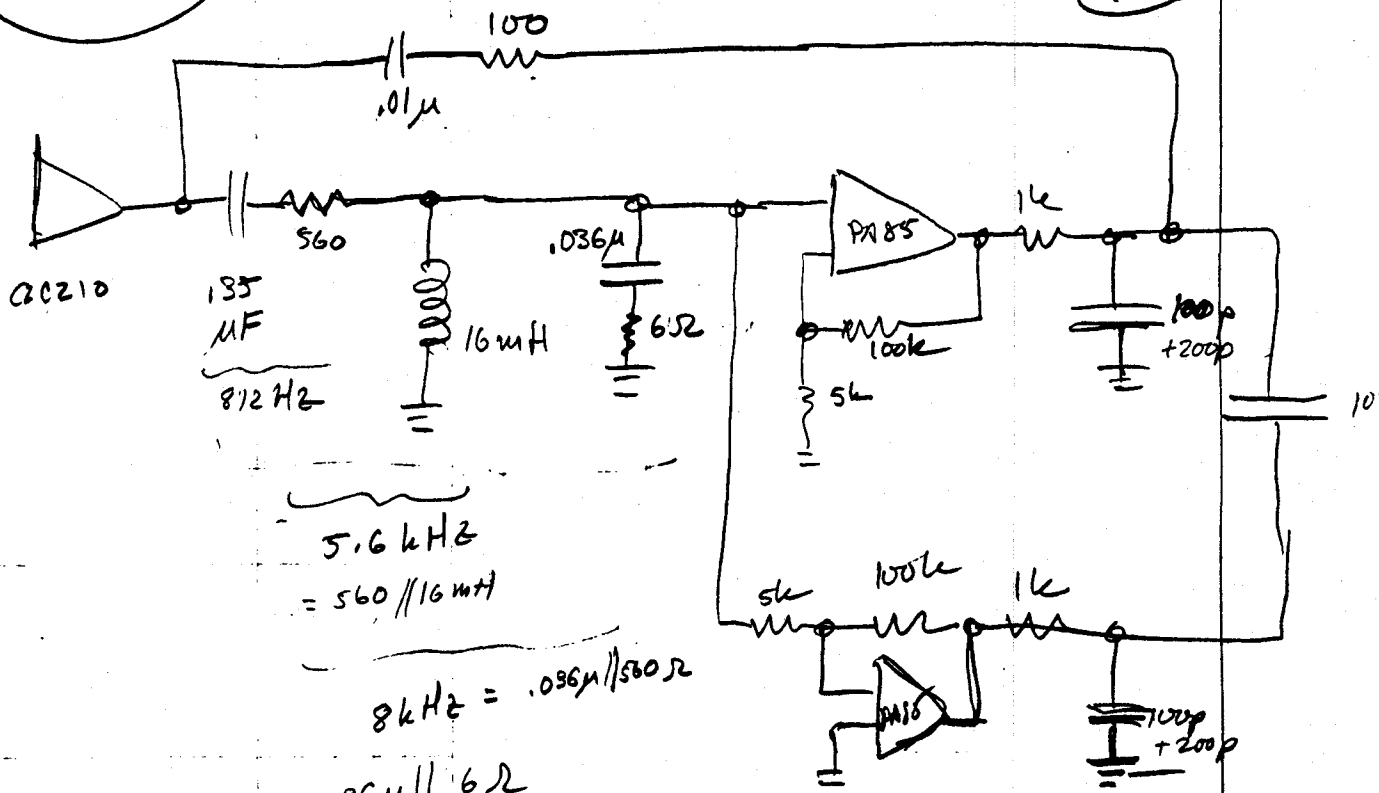 100
.01μ
560
.135
μF
812 Hz
16mH
.036μ
6Ω
PA85
1k
100k
5k
100p
+200p
10
5.6 kHz
= 560 // 16 mH
8kHz = .036μ // 560Ω
5k
100k
1k
PA85
100p
+200p
6Ω